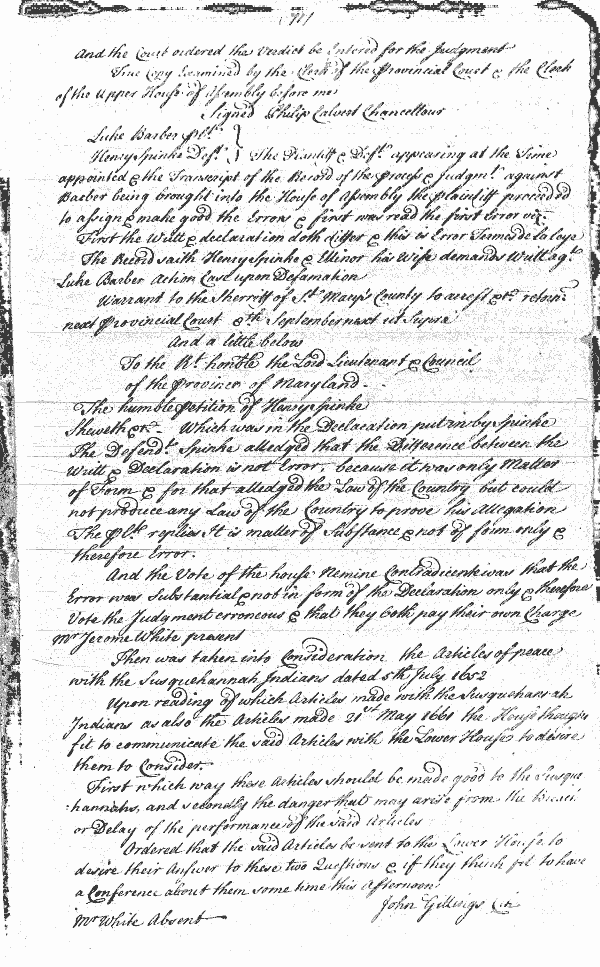 And the Court ordered the Verdict be Entered for the Judgment
True Copy Examined by the Clerk of the Provincial Court & the Clerk
of the Upper House of Assembly before me
Signed Philip Calvert Chancellour
Luke Barber plt.
Henry Spinke Deft. } The Plaintiff & Deft. appearing at the Time
appointed & the Transcript of the Record of the process & Judgmt. against
Barber being brought into the House of Assembly the plaintiff proceeded
to assign & make good the Errors & first was read the first Error viz.
First the Writt & declaration doth differ & this is Error Termes de la Loye
The Record saith Henry Spinke & Ellinor his Wife demands Writt agt.
Luke Barber Action Case upon Defamation
Warrant to the Sherriff of St. Mary's County to arrest &c. return
next Provincial Court th September next ut Supra
And a little below
To the Rt. honble the Lord Lieutenant & Council
of the Province of Maryland
The humble petition of Henry Spinke
Sheweth &c. Which was in the Declaration put in by Spinke
The Defendt. Spinke alledged that the Difference between the
Writt & Declaration is not Error, because it was only Matter
of Form & for that alledged the Law of the Country but could
not produce any Law of the Country to prove his Allegation
The plt. replies It is matter of Substance & not of form only &
therefore Error.
And the Vote of the house Nemine Contradicente was that the
Error was Substantial & not in form of the Declaration only & therefore
Vote the Judgment erroneous & that they both pay their own Charge
Mr Jerome White present
Then was taken into Consideration the Articles of peace
with the Susquehannah Indians dated 5th July 1652
Upon reading of which Articles made with the Susquehanah
Indians as also the Articles made 21st May 1661 the House thought
fit to communicate the said Articles with the Lower House to desire
them to Consider.
First which way these Articles should be made good to the Susque
:hannahs, and secondly the danger that may arise from the breach
or Delay of the performance of the said Articles
Ordered that the said Articles be sent to the Lower House to
desire their Answer to these two Questions & if they think fit to have
a Conference about them some time this Afternoon
John Gittings
Mr White Absent